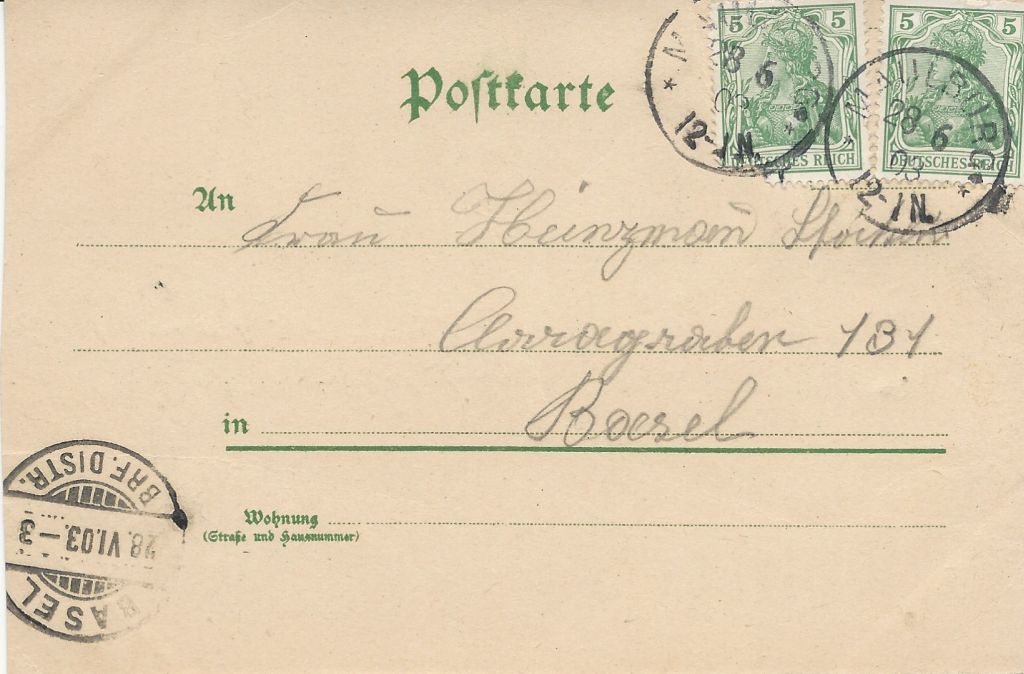 Postkarte
5 5
DEUTSCHES REICH
5 5
DEUTSCHES REICH
MAULBURG
28 6
03
12-1N.
MAULBURG
28 6
03
12-1N.
An Frau Heinzman
Aaragraben 131
in Basel
Wohnung
(Straße und Hausnummer)
BASEL
28.VI.03.-3
BRF.DISTR.